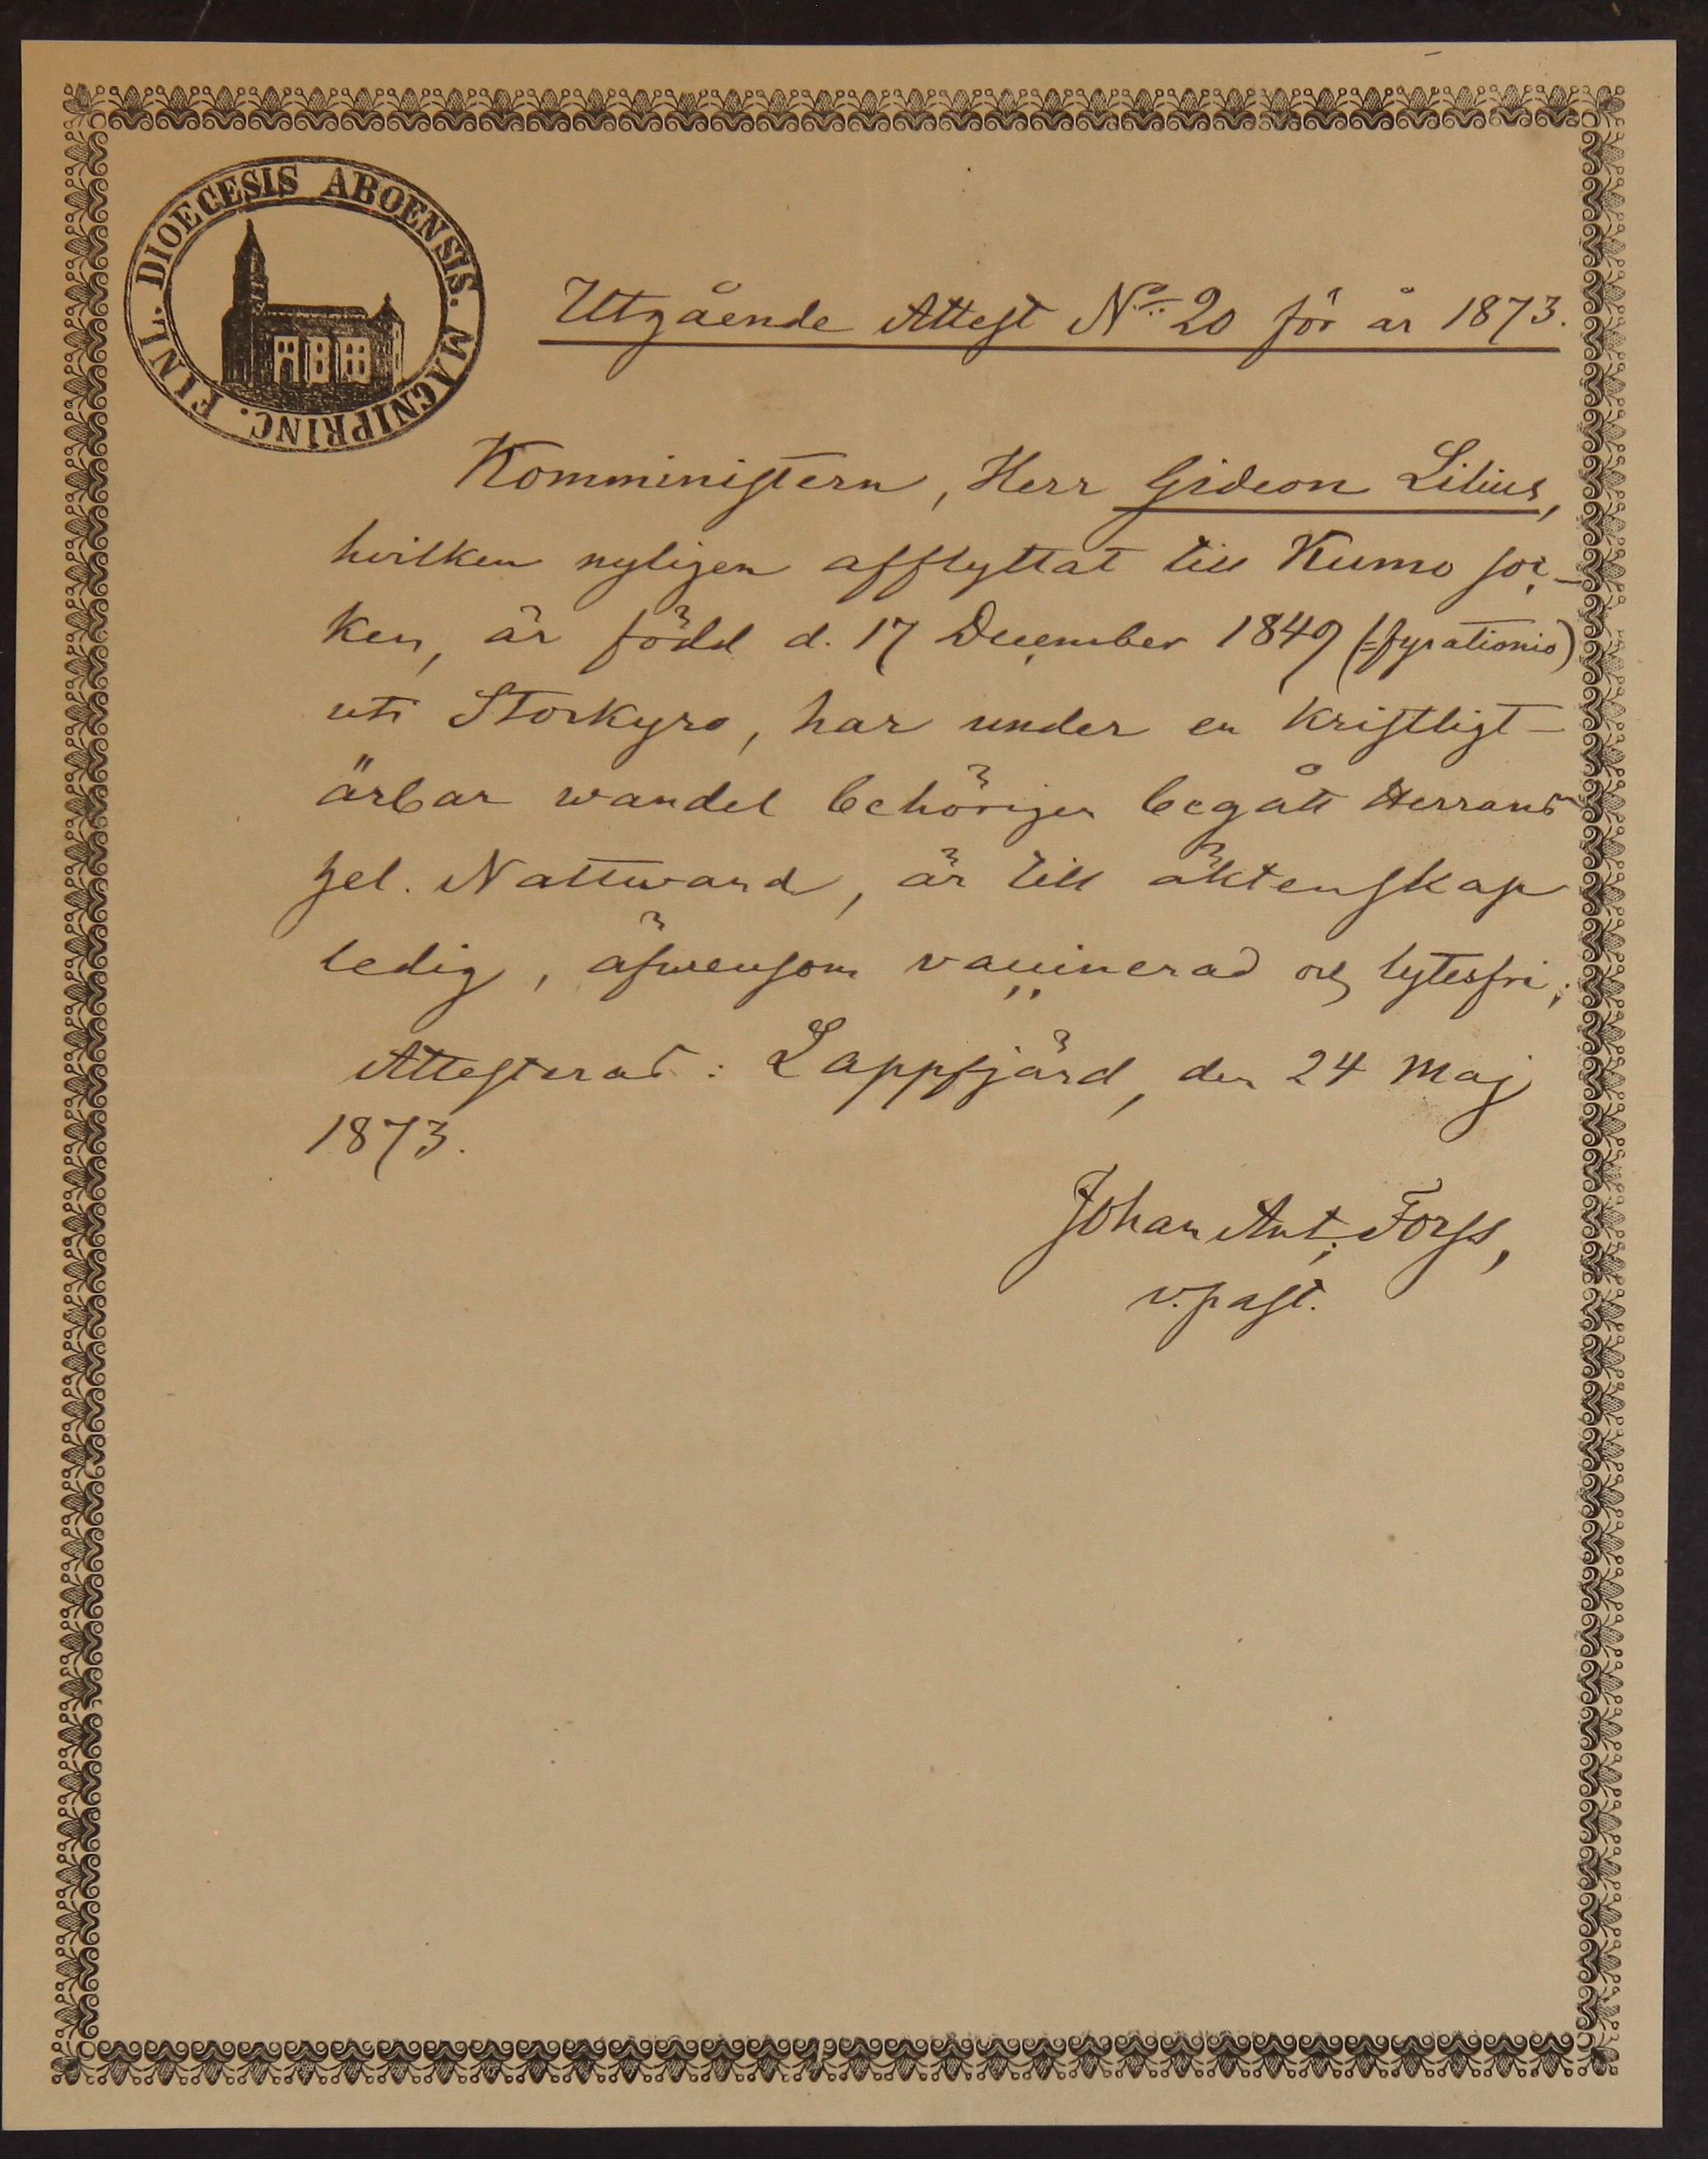 DIOECESIS ABOENSIS. MAGNIPRINC. FINL.
Utgående Attest No 20 för år 1873.
Komministern, Herr Gideon Lilius,
hvilken nyligen afflyttat till Kumo soc-
ken, är född d. 17 December 1849 (=fyrationio)
uti Storkyro, har under en kristligt-
ärbar wandel behörigen begått Herrans
hel. Nattward, är till äktenskap
ledig, äfwensom vaccinerad och lytesfri;
Attesterar: Lappfjärd, den 24 Maj
1873.
Johan Ant; Forss,
v.past.